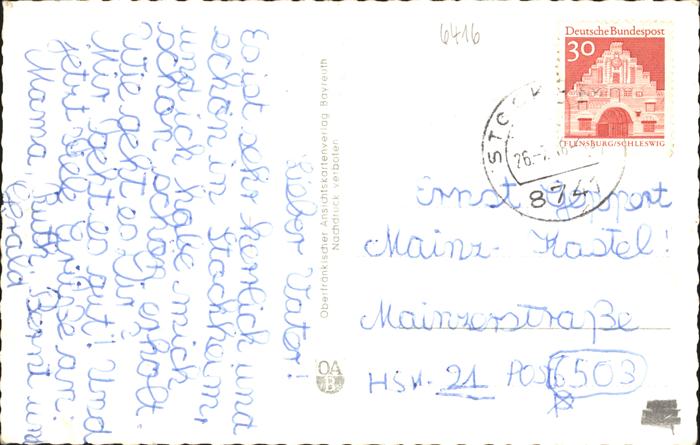 Lieber Vater!
Es ist sehr herrlich und
schön in Stockheim,
und ich habe mich
schon schön erholt
Wie geht es Dir
Mir geht es gut! Und
jetzt viele Grüße an:
Mama, Ruth, Bernd und
Gerald
Oberfränkischer Ansichtskartenverlag Bayreuth
Nachdruck verboten
OA
B
6416
Deutsche Bundespost
30
FLENSBURG/SCHLESWIG
STOCK
8741
Ernst Geppert
Mainz-Kastel!
Mainzerstraße
HSN. 21 POST 6503